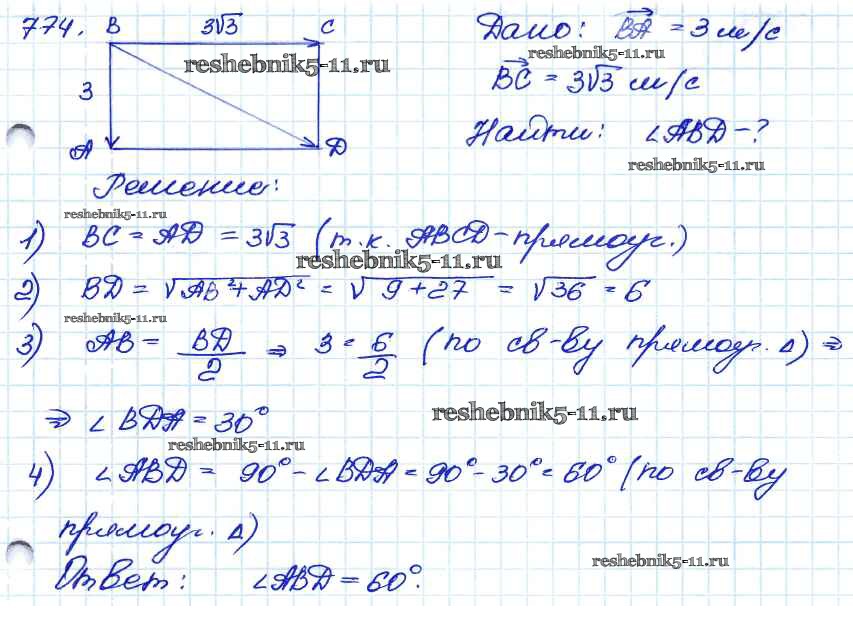 774. B 3√3 C Дано: BA = 3 м/с
reshebnik5-11.ru
reshebnik5-11.ru
3 BC = 3√3 м/с
Найти: ∠ABD - ?
A D
reshebnik5-11.ru
Решение:
reshebnik5-11.ru
1) BC = AD = 3√3 (т.к. ABCD - прямоуг.)
reshebnik5-11.ru
2) BD = √AB²+AD² = √9+27 = √36 = 6
reshebnik5-11.ru
3) AB = BD/2 ⇒ 3 = 6/2 (по св-ву прямоуг. Δ) ⇒
⇒ ∠BDA = 30°
reshebnik5-11.ru
reshebnik5-11.ru
4) ∠ABD = 90° - ∠BDA = 90° - 30° = 60° (по св-ву
прямоуг. Δ)
reshebnik5-11.ru
Ответ: ∠ABD = 60°.